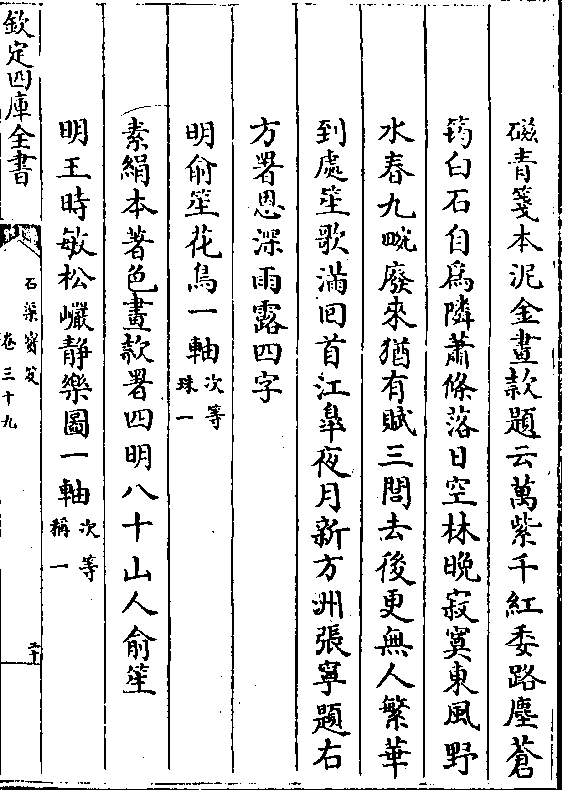 磁青箋本泥金畫款題云萬紫千紅委路塵蒼
筠白石自為隣蕭條落日空林晚寂寞東風野
水春九畹廢來猶有賦三閭去後更無人繁華
到處笙歌滿回首江臯夜月新方洲張寧題右
方署恩深雨露四字
明俞笙花鳥一軸次等
珠一
素絹本著色畫款署四明八十山人俞笙
明王時敏松巘靜樂圖一軸次等
稱一
欽定四庫全書
石渠寳笈
卷三十九